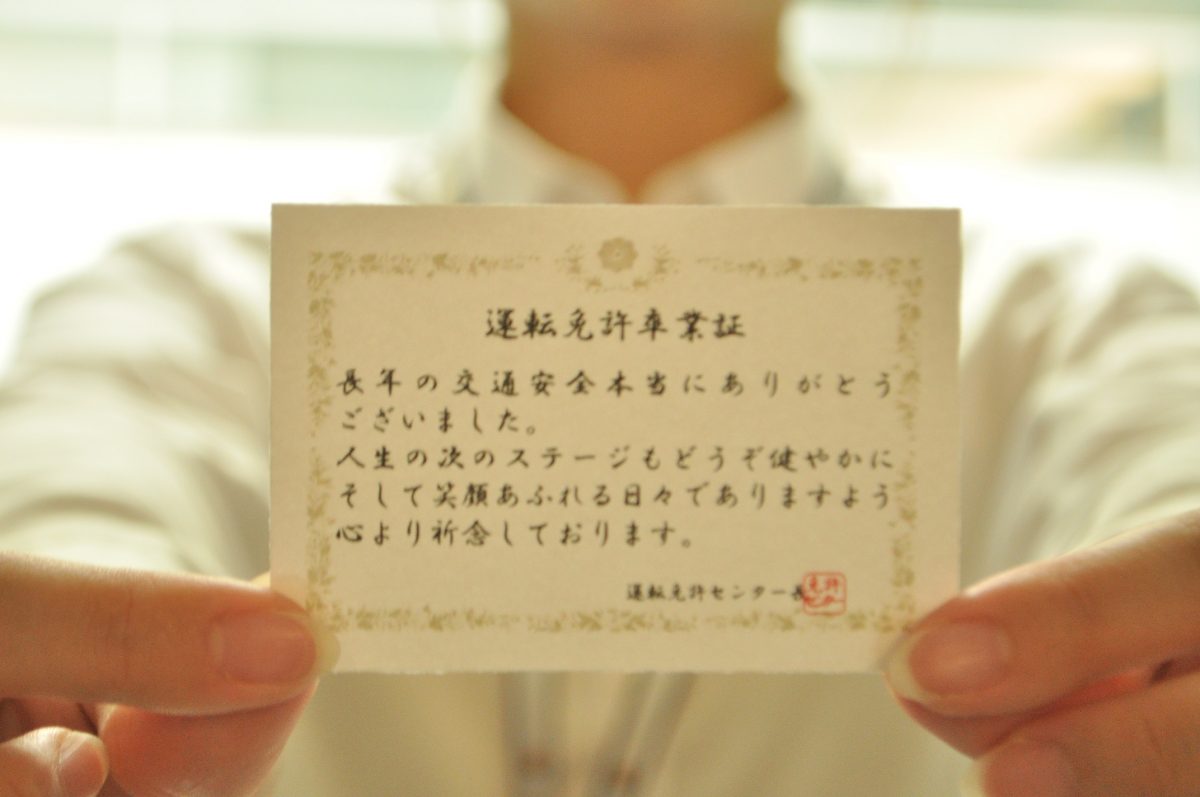 運転免許卒業証
長年の交通安全本当にありがとう
ございました。
人生の次のステージもどうぞ健やかに
そして笑顔あふれる日々でありますよう
心より祈念しております。
運転免許センター長